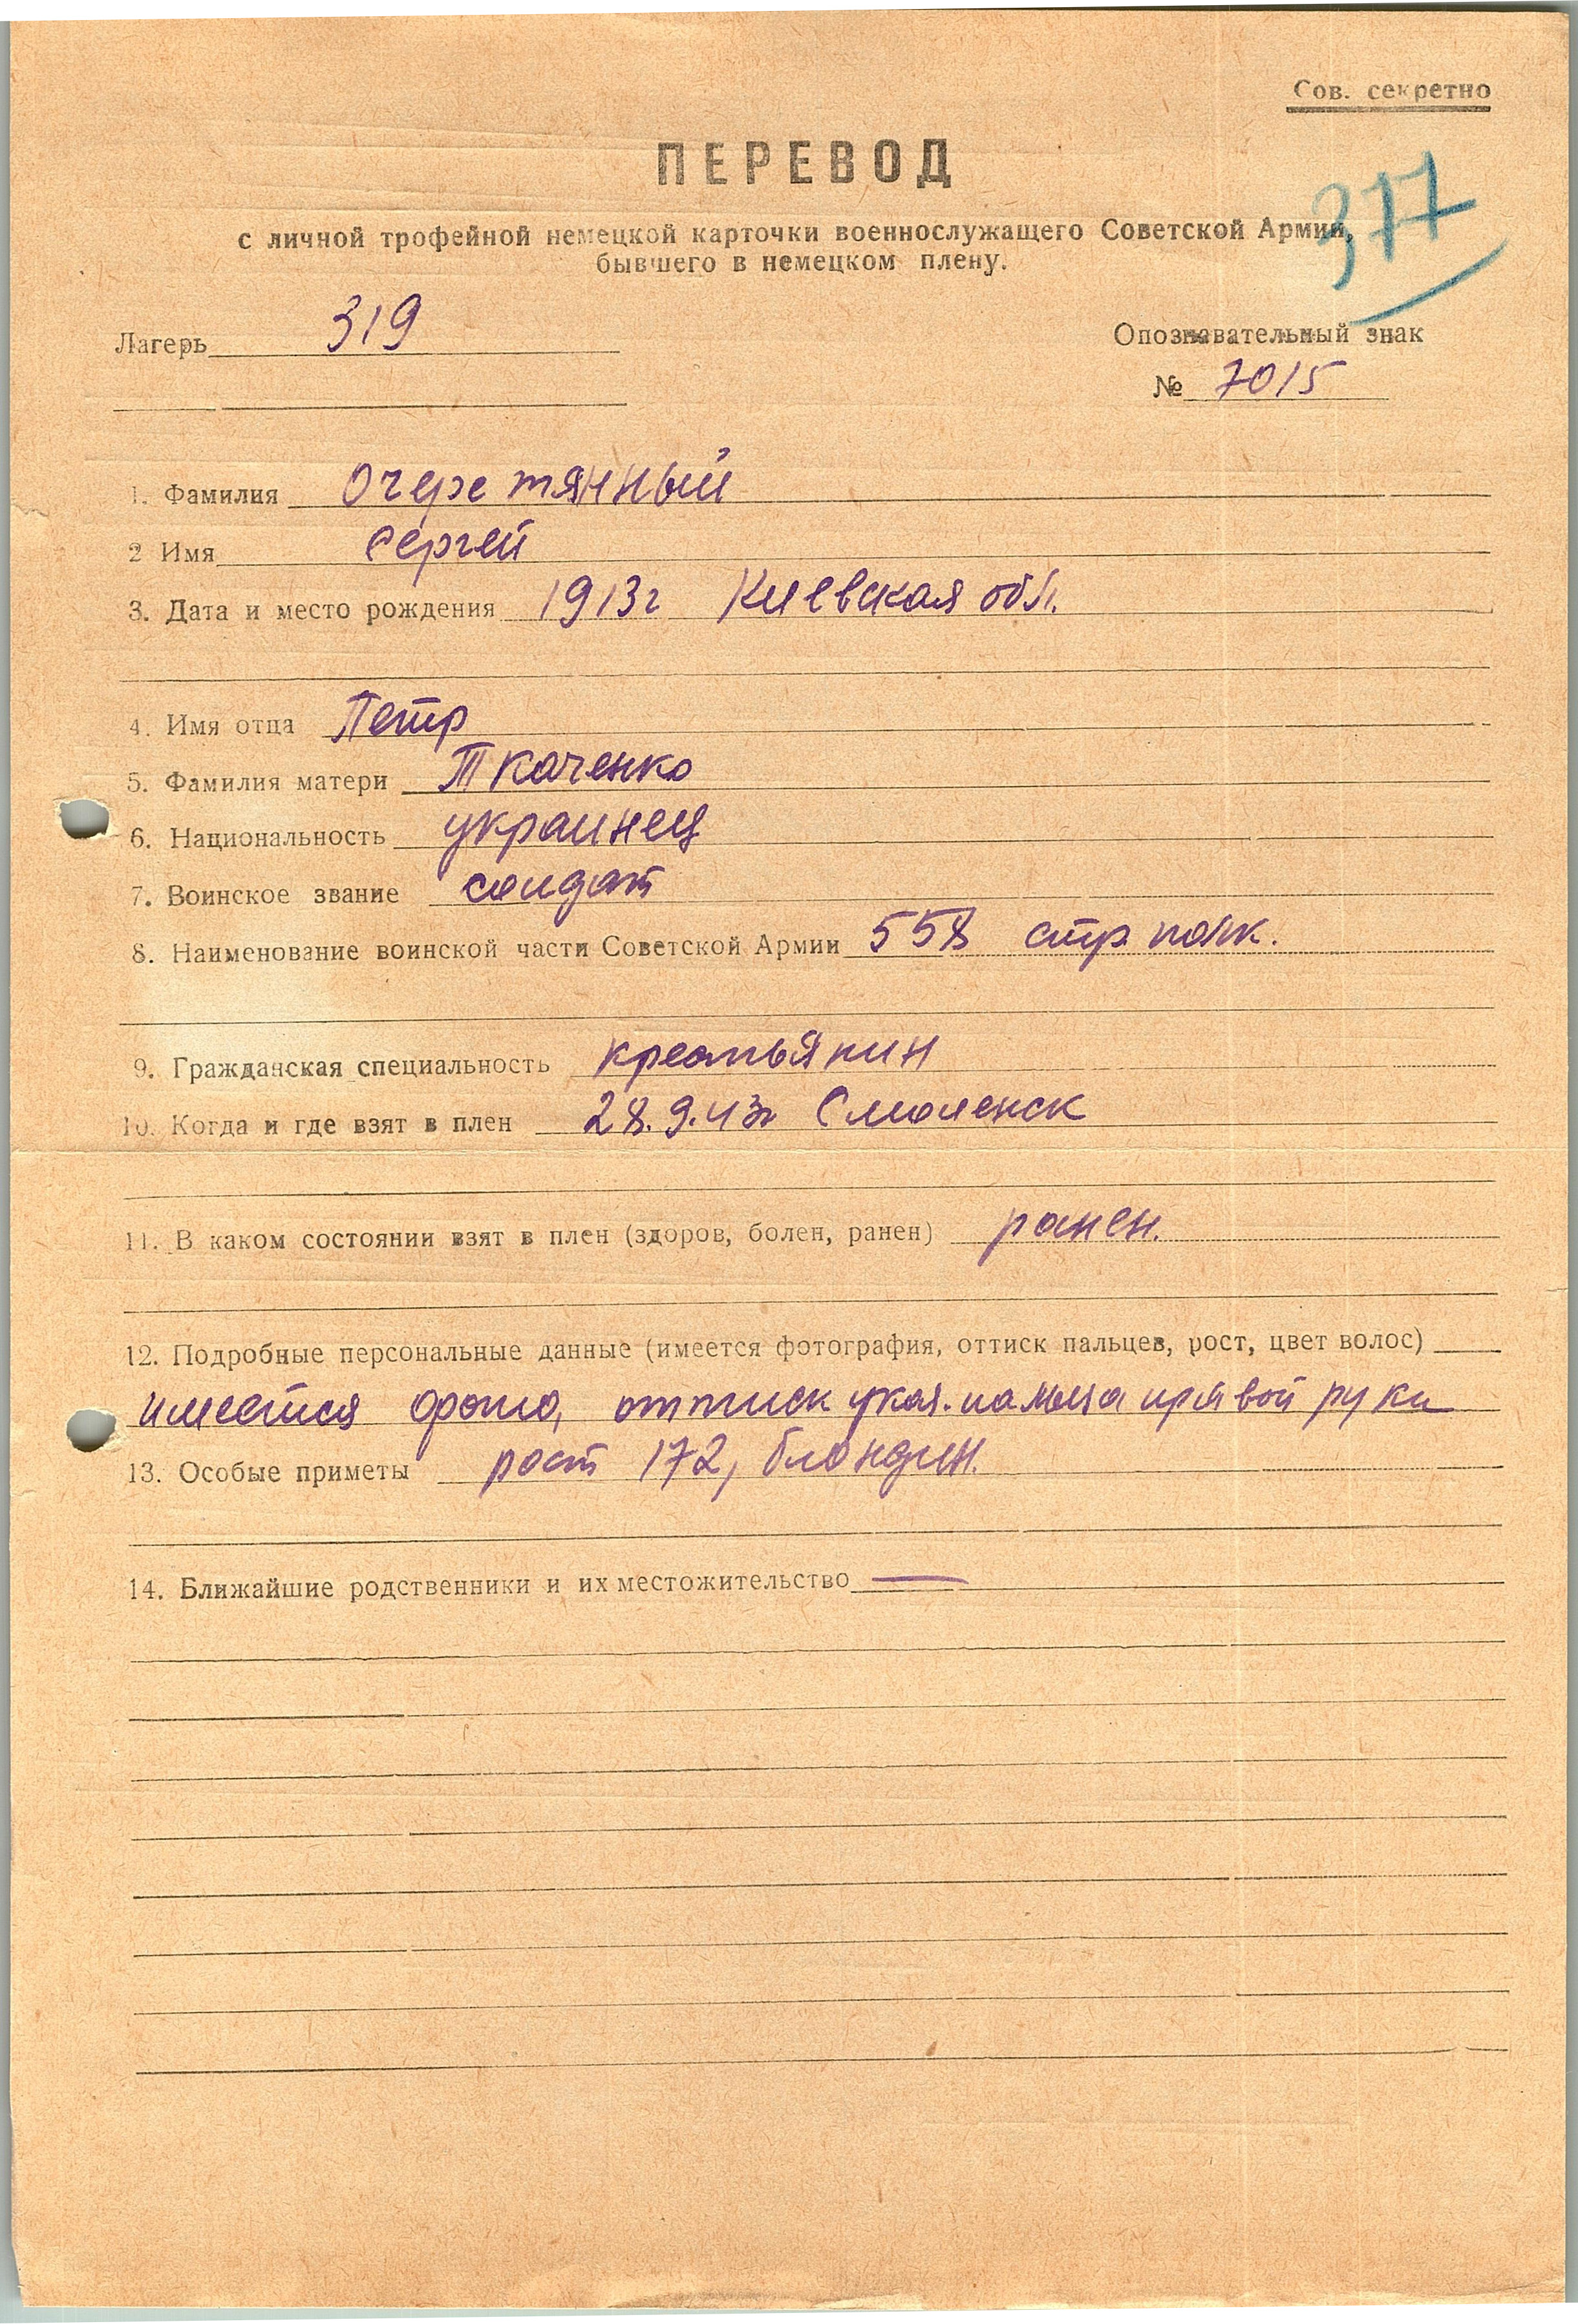 Сов. секретно
ПЕРЕВОД
377
с личной трофейной немецкой карточки военнослужащего Советской Армии,
бывшего в немецком плену.
Лагерь 319
Опознавательный знак
№ 7015
1. Фамилия Очеретянный
2 Имя Сергей
3. Дата и место рождения 1913г Киевская обл.
4. Имя отца Петр
5. Фамилия матери Ткаченко
6. Национальность украинец
7. Воинское звание солдат
8. Наименование воинской части Советской Армии 558 стр. полк.
9. Гражданская специальность крестьянин
10. Когда и где взят в плен 28.9.43г Смоленск
11. В каком состоянии взят в плен (здоров, болен, ранен) ранен.
12. Подробные персональные данные (имеется фотография, оттиск пальцев, рост, цвет волос)
имеется фото, оттиск указ. пальца правой руки
13. Особые приметы рост 172, блондин.
14. Ближайшие родственники и их местожительство —